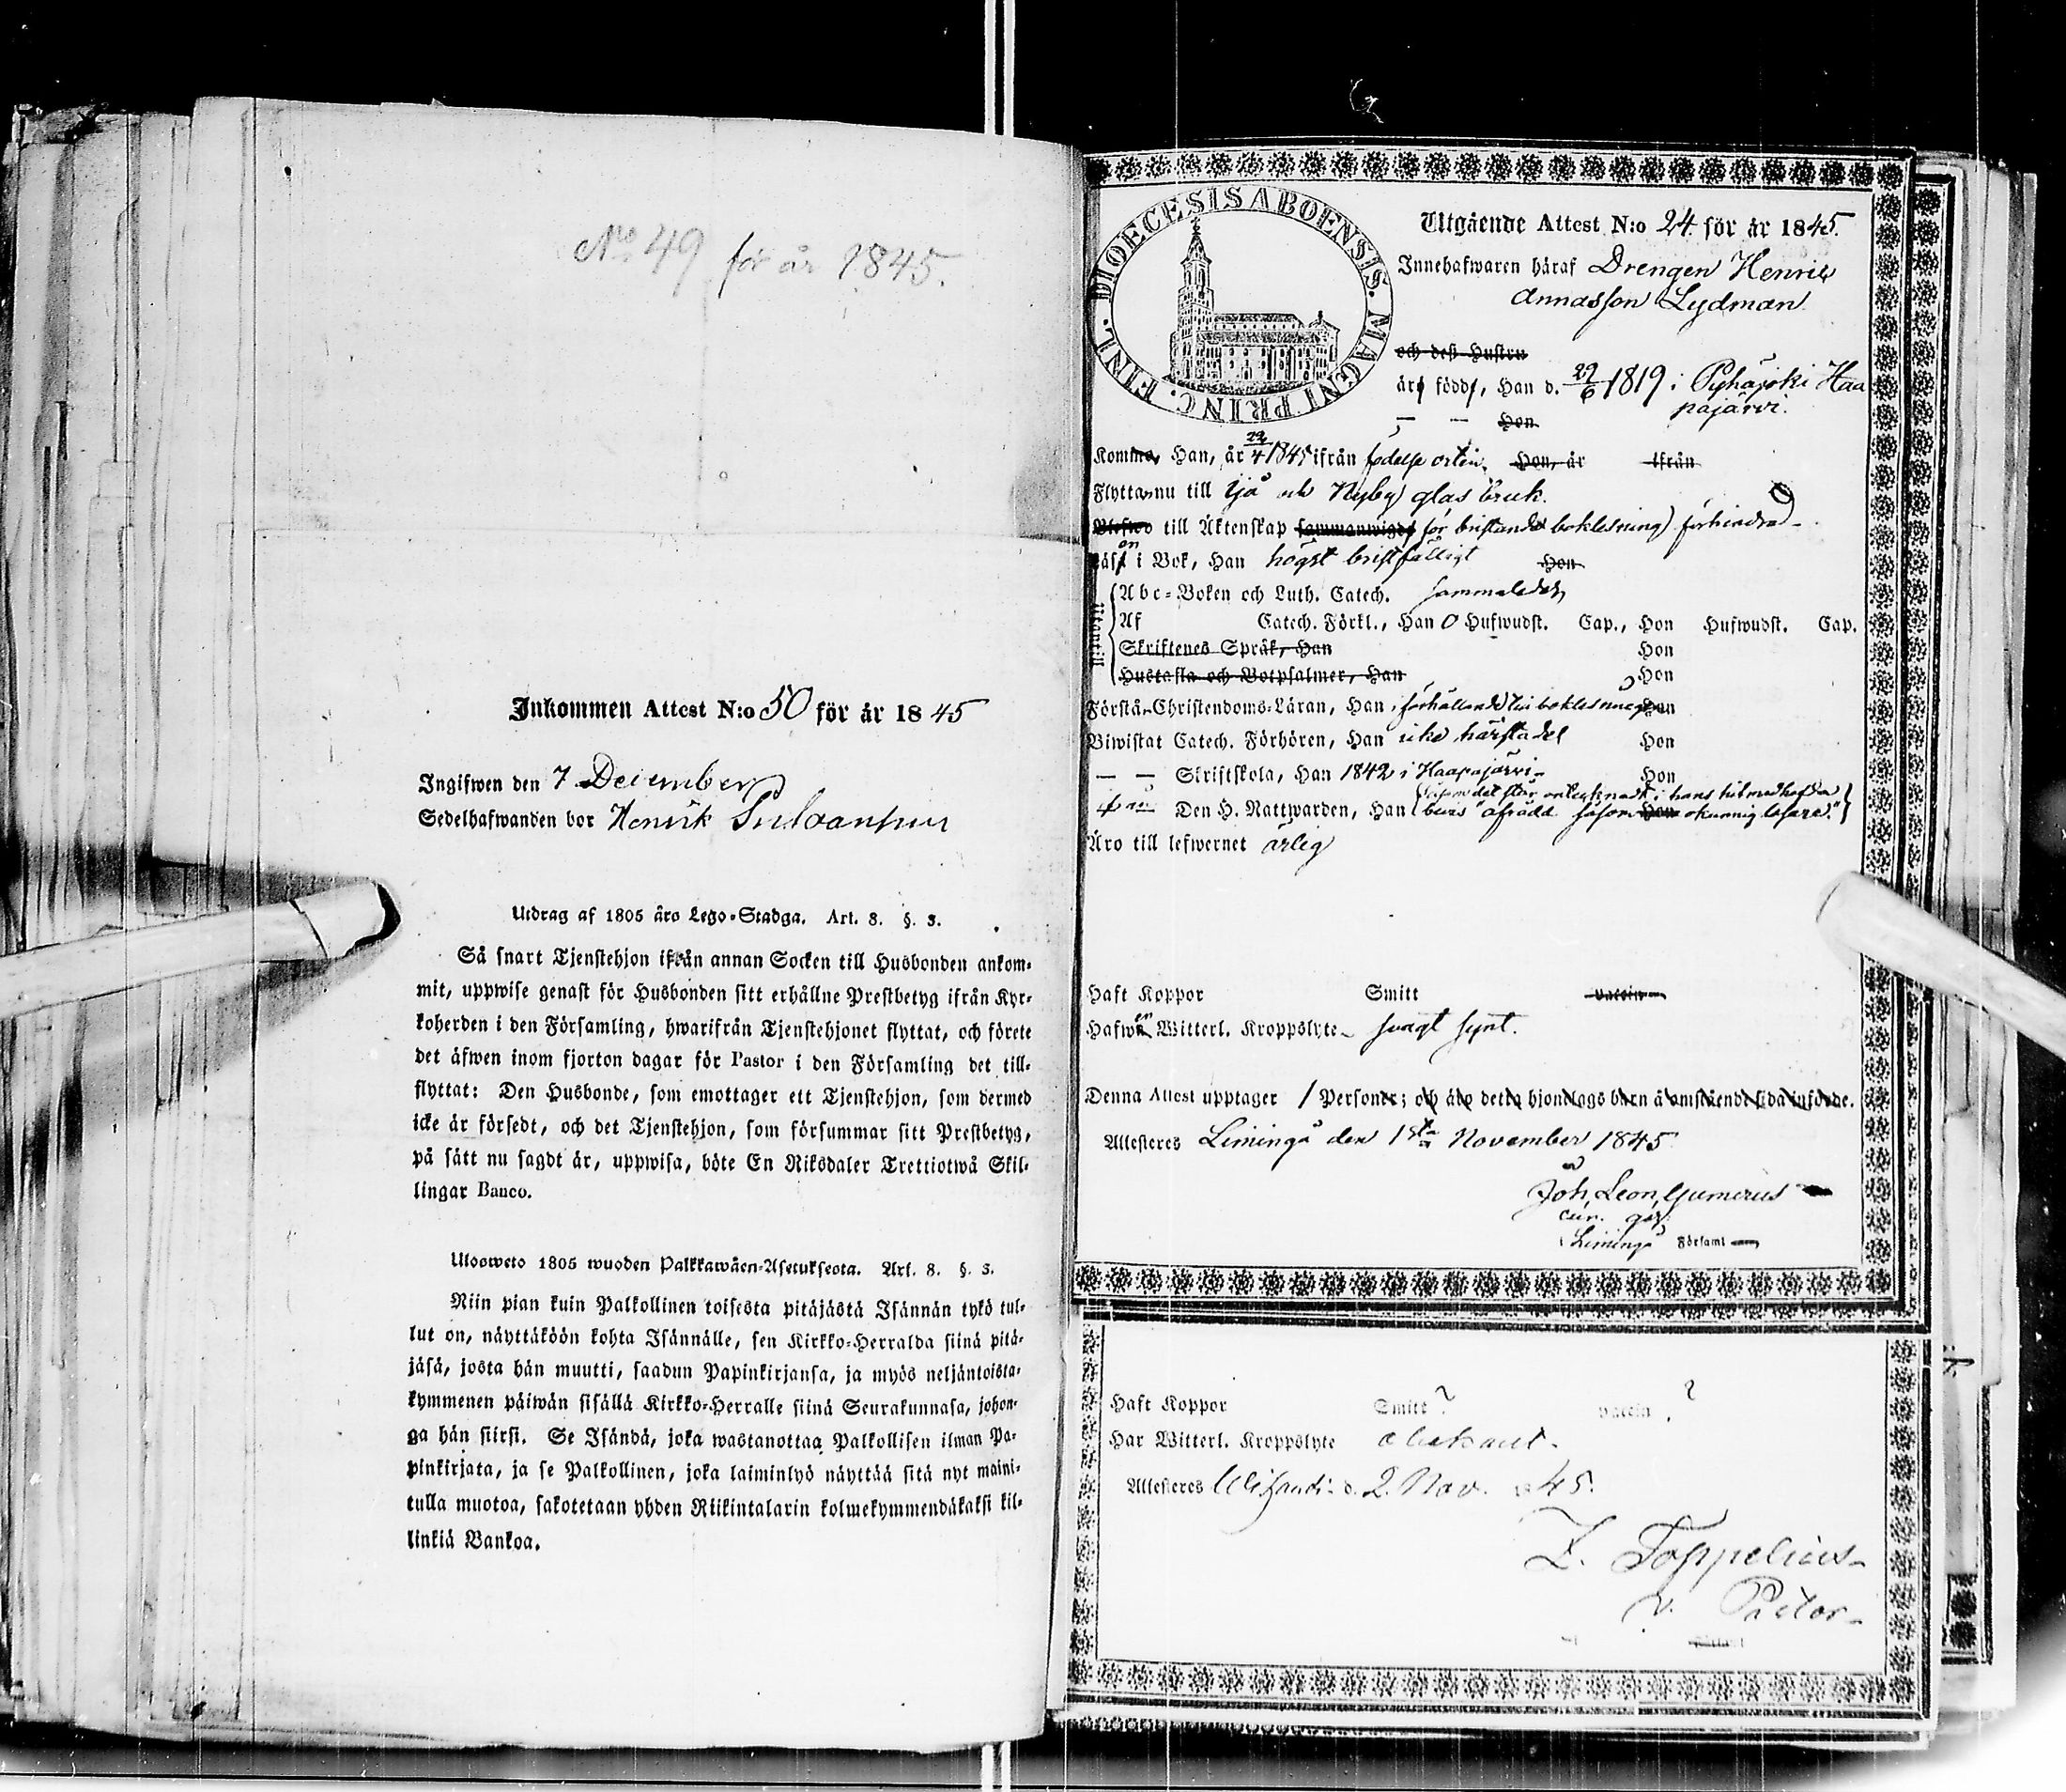 No 49 för år 1845.
Inkommen Attest N:o 50 för år 1845
Ingifwen den 7 December
Sedelhafwanden bor Henrik
Utdrag af 1805 års Lego-Stadga. Art. 8. §. 3.
Så snart Tjenstehjon ifrån annan Socken till Husbonden ankom-
mit, uppwise genast för Husbonden sitt erhållne Prestbetyg ifrån Kyr-
koherden i den Församling, hwarifrån Tjenstehjonet flyttat, och förete
det äfwen inom fjorton dagar för Pastor i den Församling det till-
flyttat: Den Husbonde, som emottager ett Tjenstehjon, som dermed
icke är försedt, och det Tjenstehjon, som försummar sitt Prestbetyg,
på sätt nu sagdt är, uppwisa, böte En Riksdaler Trettiotwå Skil-
lingar Banco.
Ulosweto 1805 wuoden Palkkawäen-Asetuksesta. Art. 8. §. 3.
Niin pian kuin Palkollinen toisesta pitäjästä Isännän tykö tul-
lut on, näyttäköön kohta Isännälle, sen Kirkko-Herralda siinä pitä-
jäsä, josta hän muutti, saadun Papinkirjansa, ja myös neljäntoista-
kymmenen päiwän sisällä Kirkko-Herralle siinä Seurakunnasa, johon-
ga hän siirsi. Se Isändä, joka wastanottaa Palkollisen ilman Pa-
pinkirjata, ja se Palkollinen, joka laiminlyö näyttää sitä nyt maini-
tulla muotoa, sakotetaan yhden Riikintalarin kolmekymmendäkaksi kil-
linkiä Bankoa.
DIOECESIS ABOENSIS. MAGNI PRINC. FINL.
Utgående Attest N:o 24 för år 1845.
Innehafwaren häraf Drengen Henric
Annasson Lydman
och deß Hustru
äro födde, Han d. 29/6 1819 i Pyhäjoki Haa
pajärvi.
— — Hon
Komne, Han, år 1845 ifrån födelse orten. Hon, år ifrån
Flytta nu till Ijå och Nyby glas bruk.
till Äktenskap sammanwigde för bristande boklesning förhindrad
Läsa i Bok, Han högst bristfälligt Hon
Utantill
Abc-Boken och Luth. Catech. sammaledes
Af Catech. Förkl., Han 0 Hufwudst. Cap., Hon Hufwudst. Cap.
Skriftenes Språk, Han Hon
Hustafla och Botpsalmer, Han Hon
Förstå Christendoms-Läran, Han i förhållande till boklesningen Hon
Biwistat Catech. Förhören, Han icke härstädes Hon
— — Skriftskola, Han 1842 i Haapajärvi Hon
Den H. Nattwarden, Han (såsom det står antecknadt i hans hit medhafda
bevis "afrådd såsom Hon okunnig läsare.")
Äro till lefwernet ärlig
Haft Koppor Smitt vaccin
Hafwa Witterl. Kroppslyte svagt synt.
Denna Attest upptager 1 Personer; och äro detta hjonelags barn å omstående sida införde.
Attesteres Limingå den November 1845
Joh. Leon. Gumerus
i Limingå Församl
Haft Koppor Smitt ? vaccin ?
Har Witterl. Kroppslyte obekant.
Attesteres d. 2. Nov. 1845.
Z. Toppelius
v. Pastor